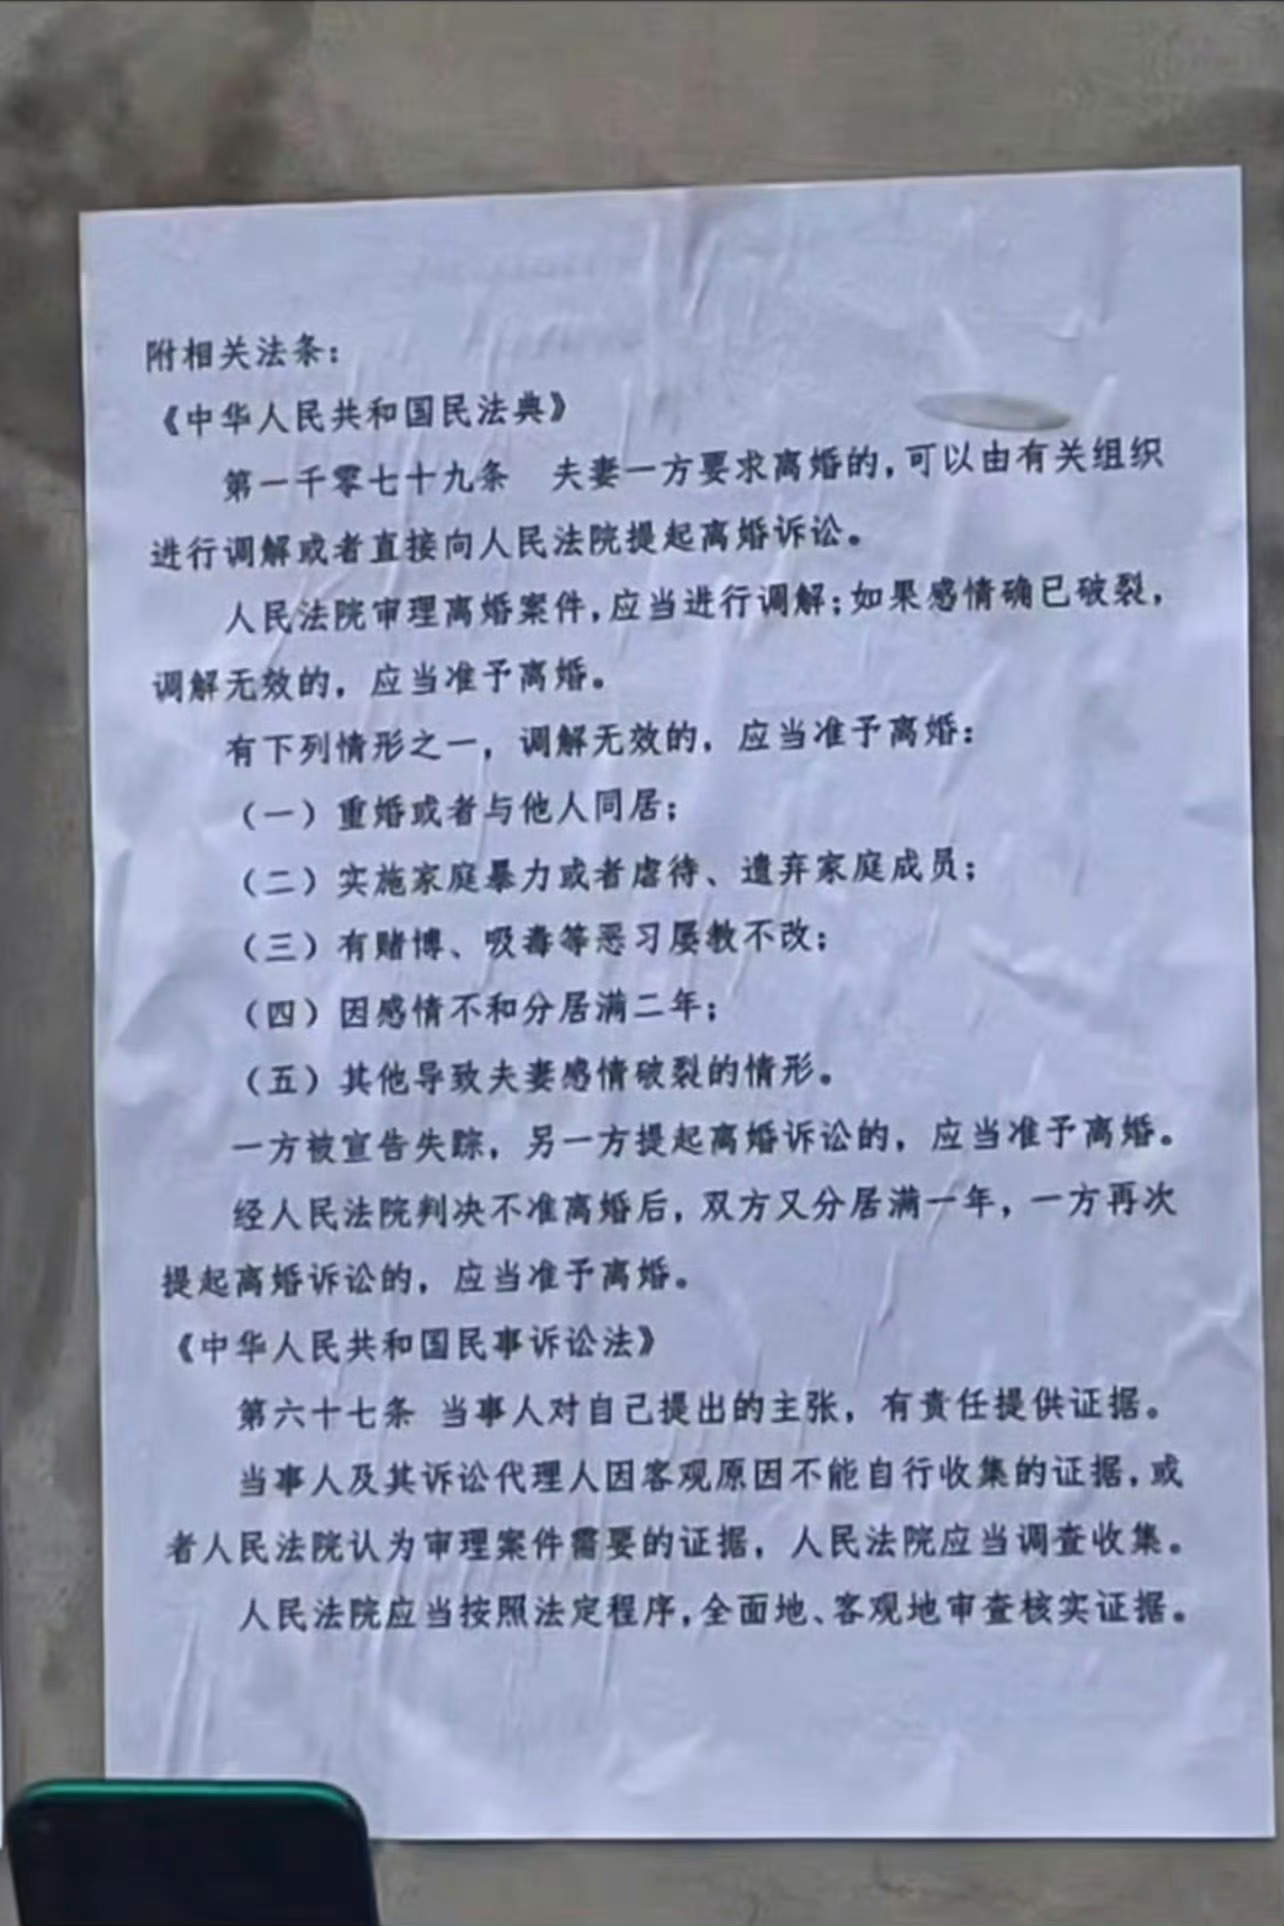 附相关法条：
《中华人民共和国民法典》
第一千零七十九条　夫妻一方要求离婚的，可以由有关组织
进行调解或者直接向人民法院提起离婚诉讼。
人民法院审理离婚案件，应当进行调解；如果感情确已破裂，
调解无效的，应当准予离婚。
有下列情形之一，调解无效的，应当准予离婚：
（一）重婚或者与他人同居；
（二）实施家庭暴力或者虐待、遗弃家庭成员；
（三）有赌博、吸毒等恶习屡教不改；
（四）因感情不和分居满二年；
（五）其他导致夫妻感情破裂的情形。
一方被宣告失踪，另一方提起离婚诉讼的，应当准予离婚。
经人民法院判决不准离婚后，双方又分居满一年，一方再次
提起离婚诉讼的，应当准予离婚。
《中华人民共和国民事诉讼法》
第六十七条 当事人对自己提出的主张，有责任提供证据。
当事人及其诉讼代理人因客观原因不能自行收集的证据，或
者人民法院认为审理案件需要的证据，人民法院应当调查收集。
人民法院应当按照法定程序，全面地、客观地审查核实证据。